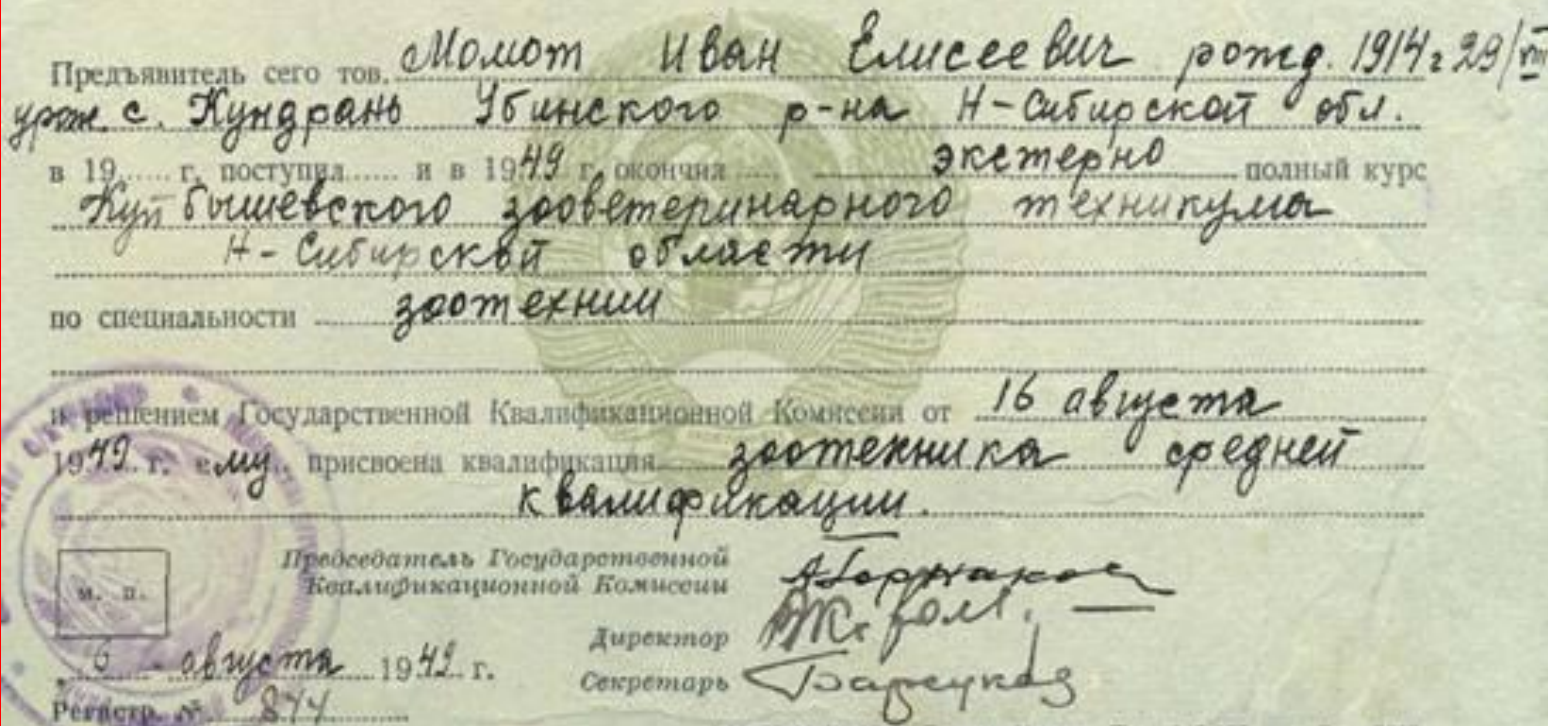 Предъявитель сего тов. Момот Иван Елисеевич рожд. 1914 г 29/VIII
урож. с. Кундрань Убинского р-на Н-Сибирской обл.
в 19..... г. поступил..... и в 1949 г. окончил экстерно полный курс
Куйбышевского зооветеринарного техникума
Н-Сибирской области
по специальности зоотехнии
и решением Государственной Квалификационной Комиссии от 16 августа
1949 г. ему присвоена квалификация зоотехника средней
квалификации.
Председатель Государственной
Квалификационной Комиссии
м. п.
Директор
августа 1949 г.
Секретарь
Регистр. № 844